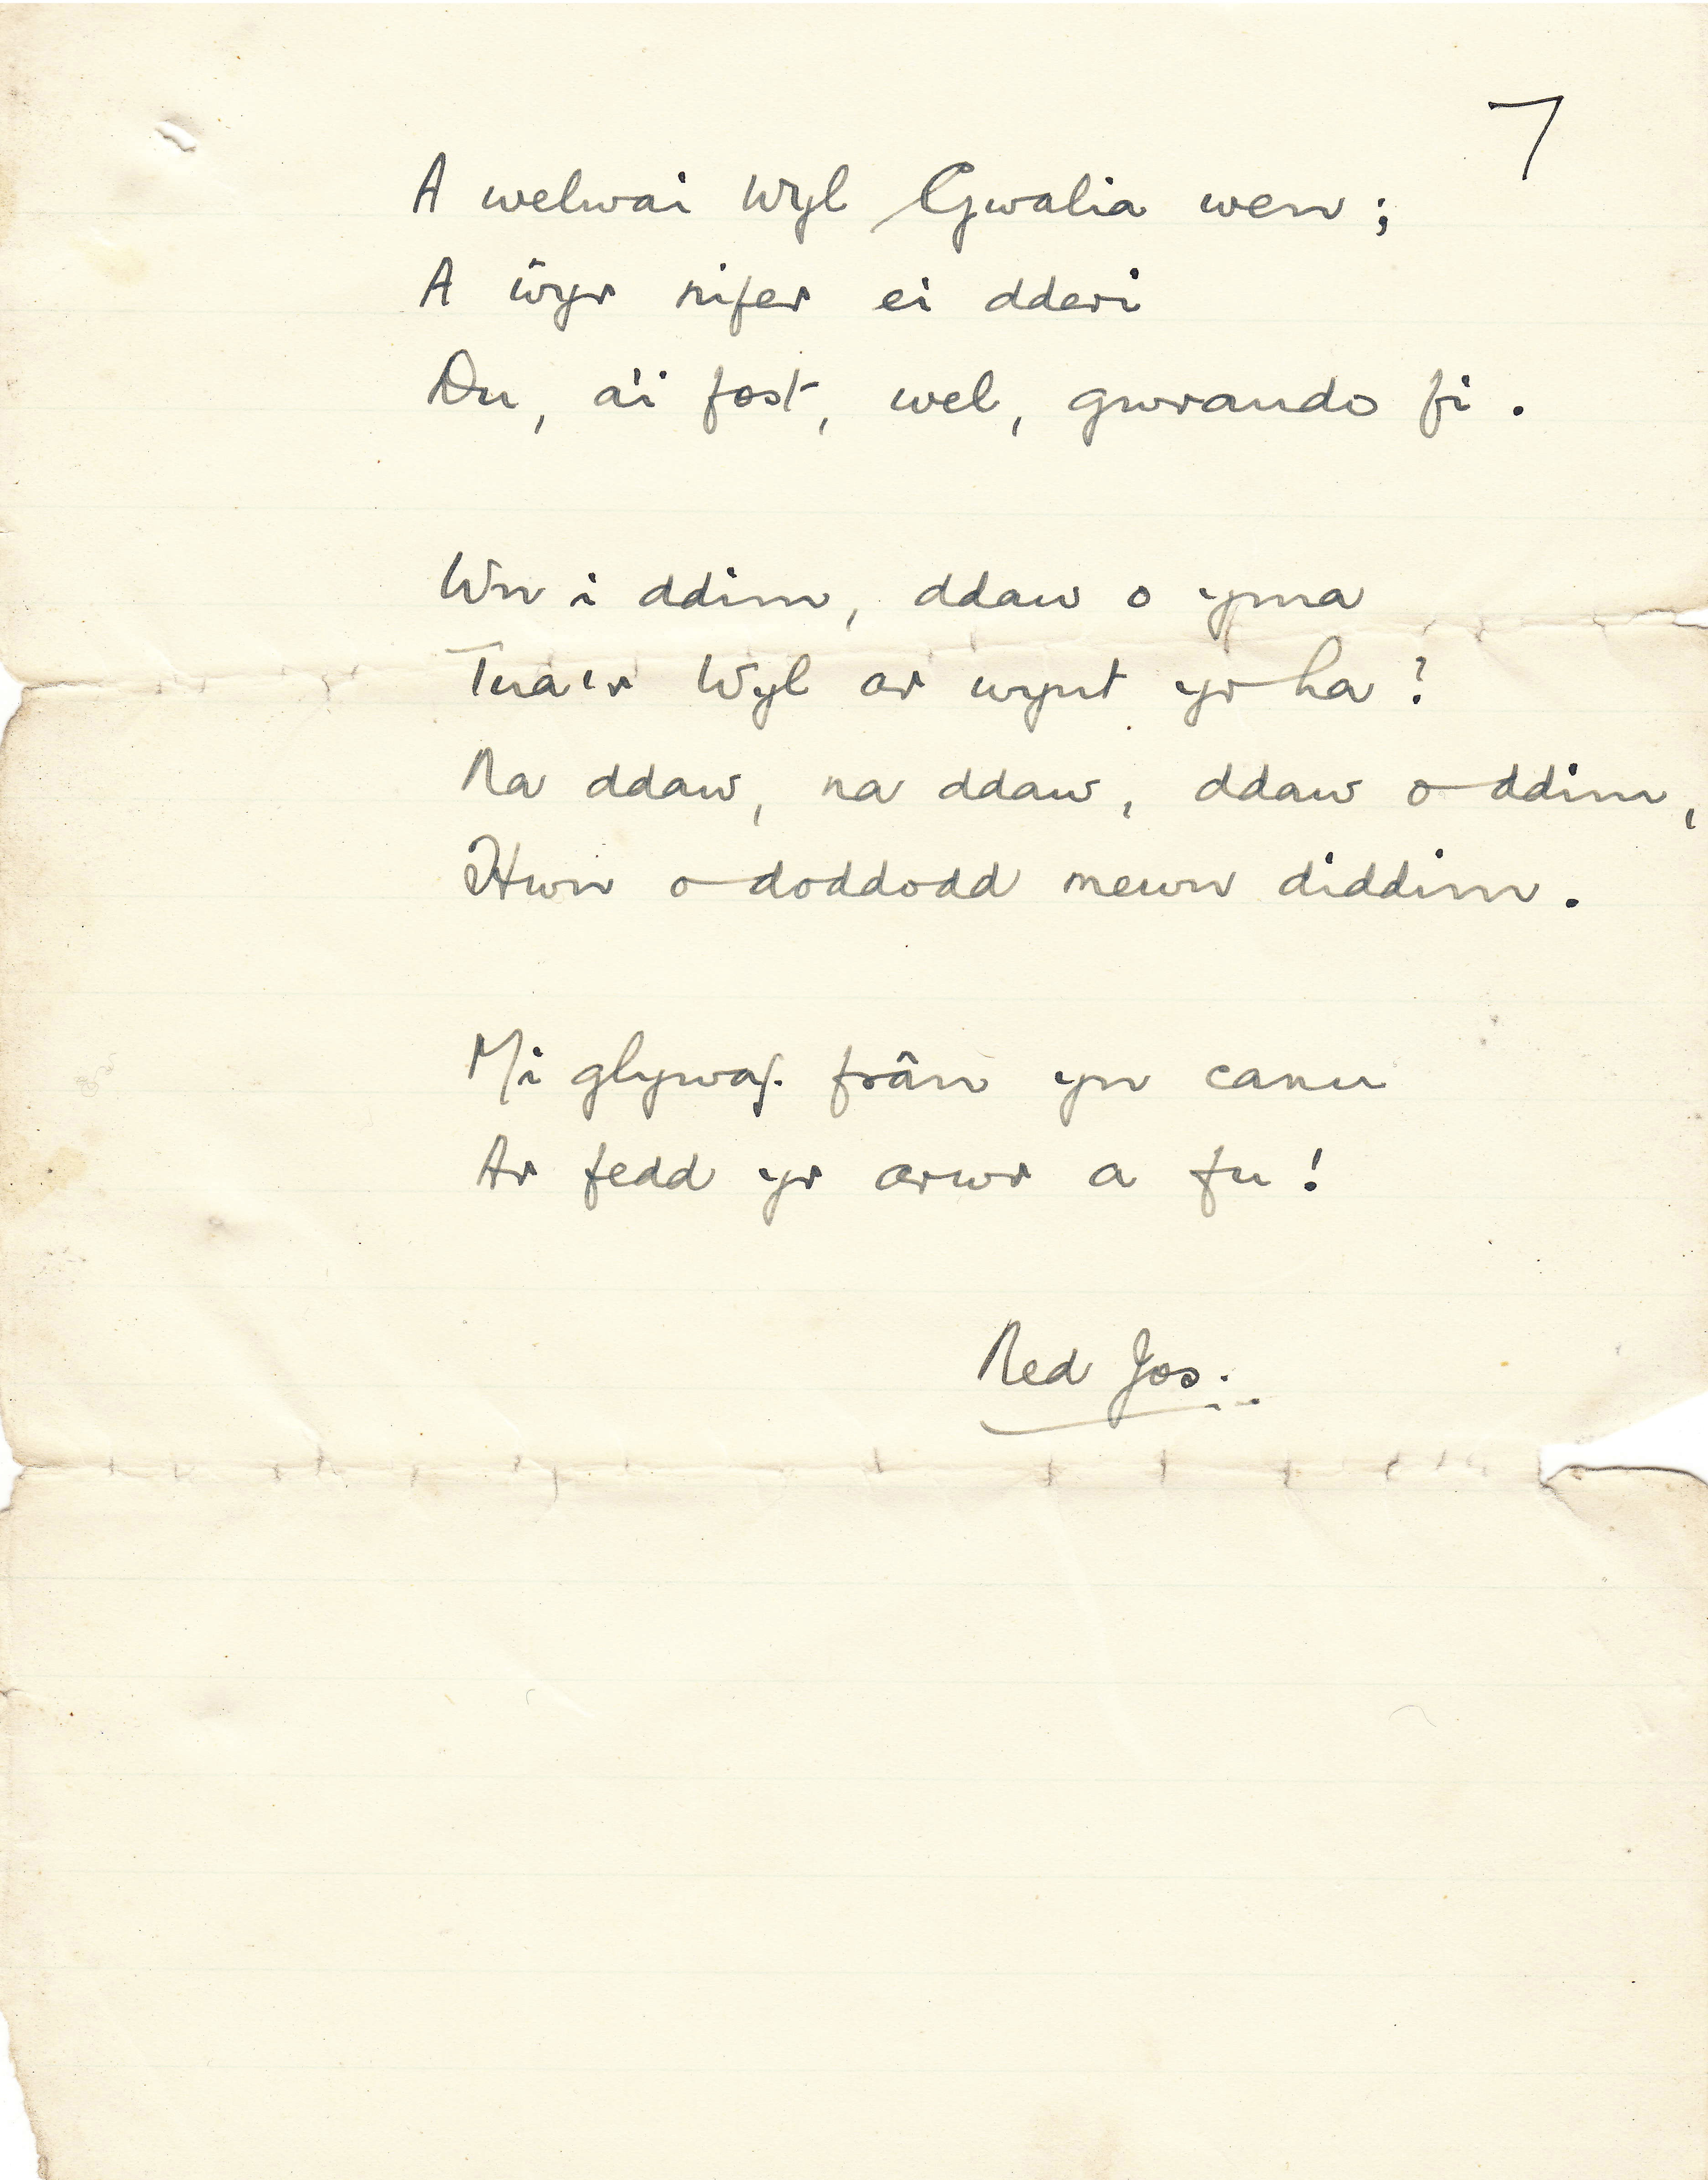 7
A welwai Wyl Gwalia wen;
A ŵyr nifer ei dderi
Du, a'i fost, wel, gwrando fi.
Wn i ddim, ddaw o yma
Tua'r Wyl ar wynt yr ha?
Na ddaw, na ddaw, ddaw o ddim,
Hwn o doddodd mewn diddim.
Mi glywaf frân yn canu
Ar fedd yr arwr a fu!
Ned Jos.